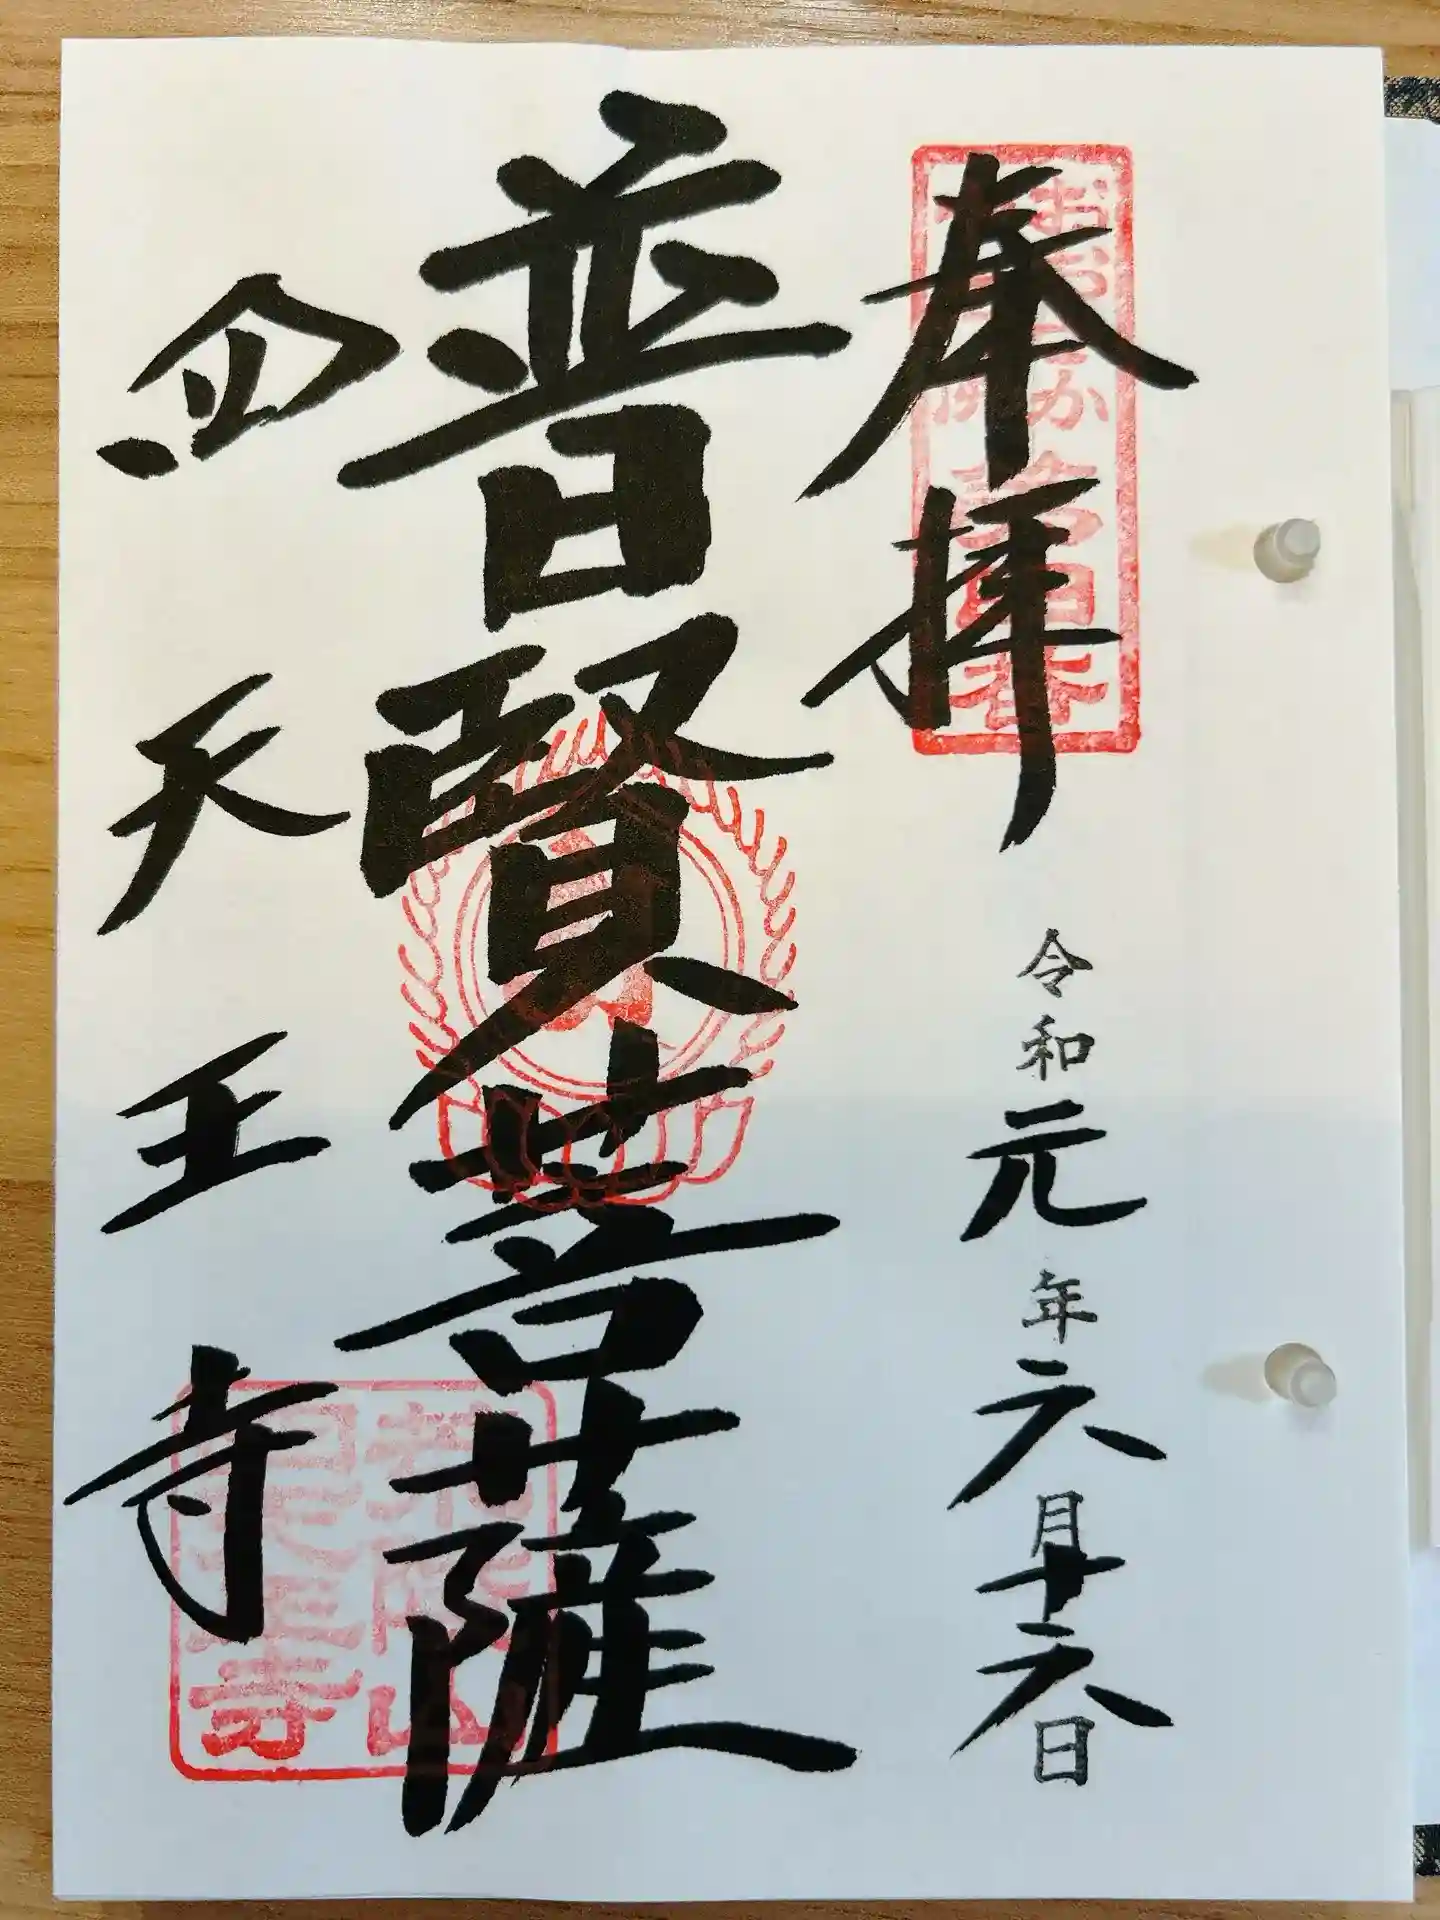 奉拝
令和元年六月十六日
普賢菩薩
四天王寺